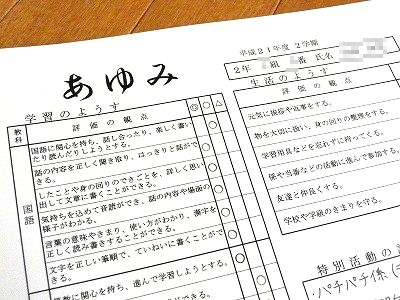 あゆみ
平成21年度 2学期
2年 組 番 氏名
学習のようす
教科
評価の観点
◎ ○ △
国語
国語に関心を持ち、話し合ったり、楽しく書い
たり読んだりしようとする。
話の内容を正しく聞き取り、はっきりと話がで
きる。
したことや身の回りのできごとを、詳しく思い
出して文章に書くことができる。
気持ちを込めて音読ができ、話の内容や場面の
様子がわかる。
言葉の意味やきまり、使い方がわかり、漢字を
正しく読み書きすることができる。
文字を正しい筆順で、ていねいに書くことがで
きる。
数に関心を持ち、進んで学習しようとする。
生活のようす
評価の観点
元気に挨拶や返事をする。
物を大切に扱い、身の回りの整理をする。
学習用具などを忘れずに持ってくる。
係や当番などの活動に進んで参加する。
友達と仲良くする。
学校や学級のきまりを守る。
特別活動の
・パチパチ係